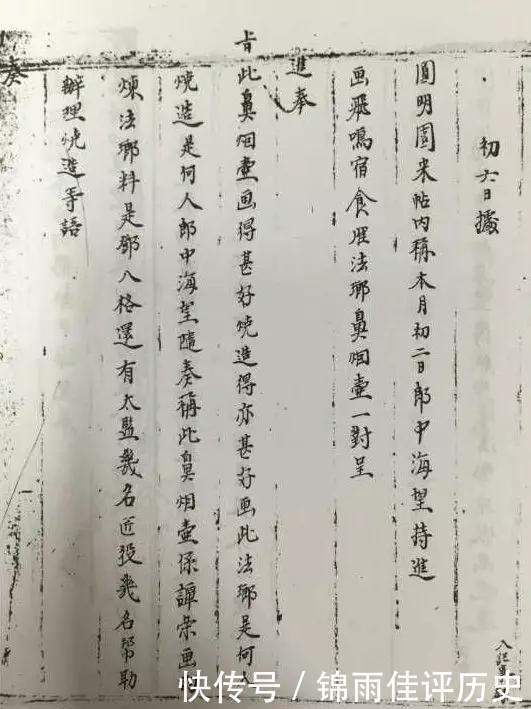 初六日據
圓明園來帖內稱本月初二日郎中海望持進
画飛鳴宿食雁法瑯鼻烟壺一對呈
進奉
旨此鼻烟壺画得甚好燒造得亦甚好画此法瑯是何人
燒造是何人郎中海望隨奏稱此鼻烟壺係譚榮画的
煉法瑯料是鄧八格還有太監幾名匠役幾名幫助
辦理燒造等語
奏
快传号 / 锦雨佳评历史